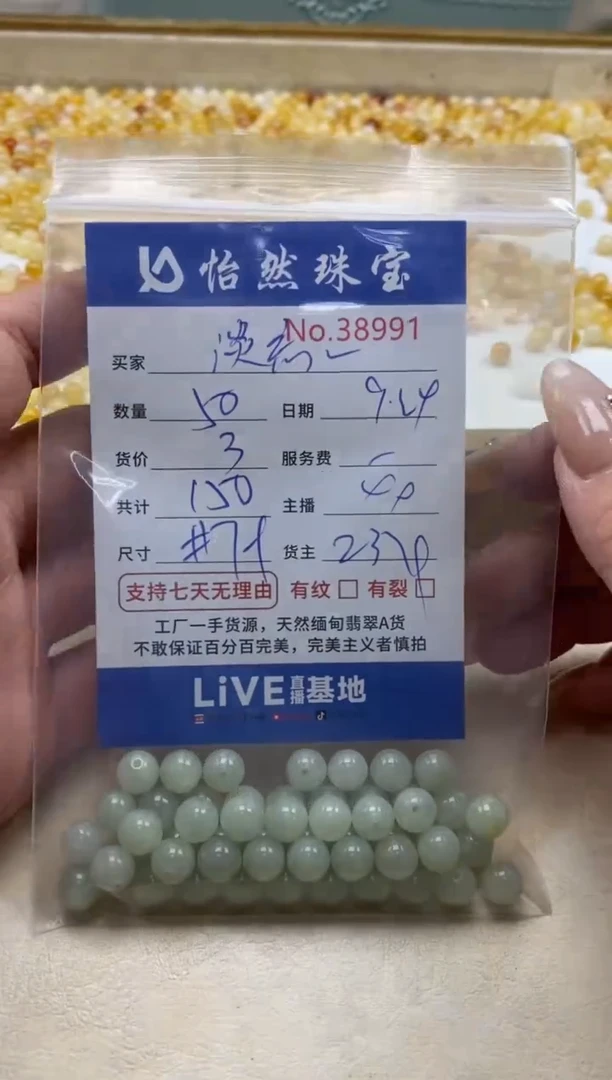 怡然珠宝
No.38991
买家 淡
数量 50 日期 9.24
货价 3 服务费
共计 150 主播
尺寸 货主
支持七天无理由 有纹 有裂
工厂一手货源，天然缅甸翡翠A货
不敢保证百分百完美，完美主义者慎拍
LiVE直播基地